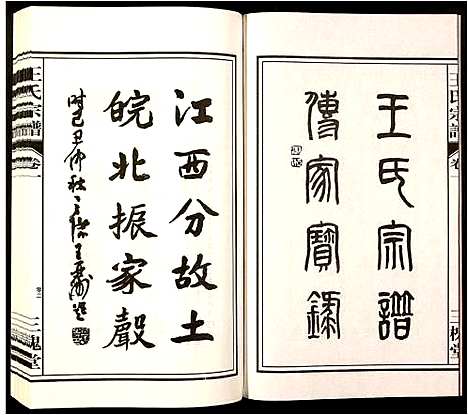 王氏宗譜
卷一
三槐堂
王氏宗譜
傳家寶錄
江西分故土
皖北振家聲
時己丑仲秋
王氏宗譜
卷一
三槐堂